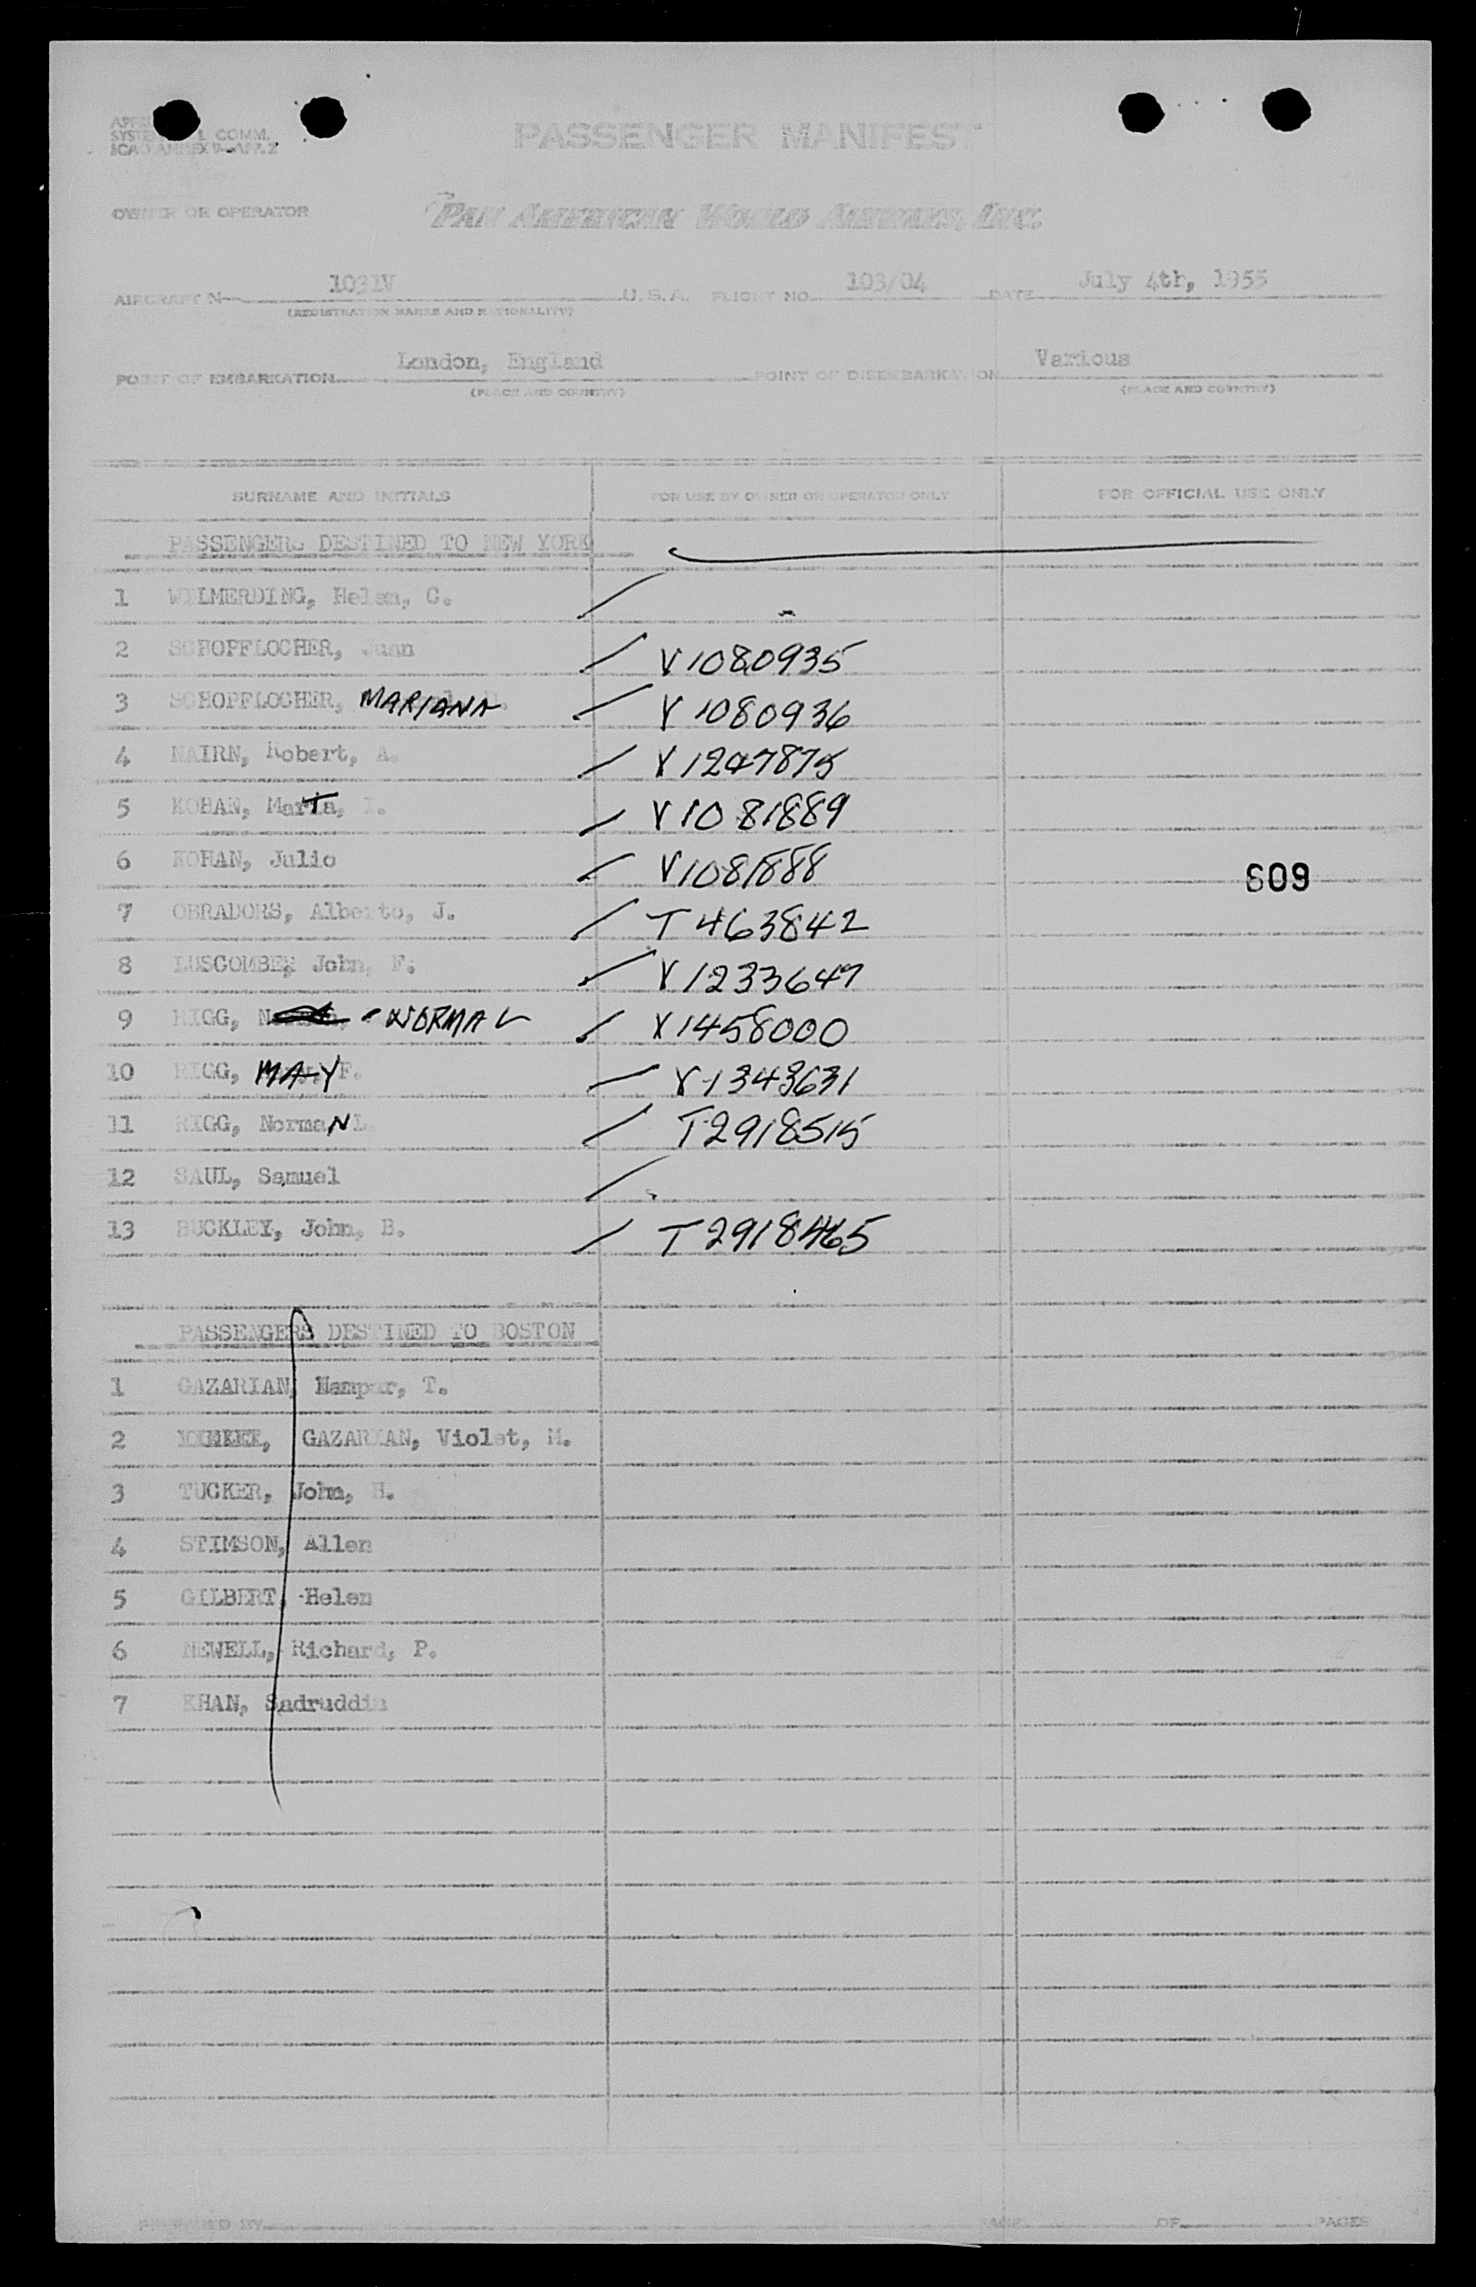 PASSENGER MANIFEST
OWNER OR OPERATOR PAN AMERICAN WORLD AIRWAYS, INC.
AIRCRAFT N 1031V U.S.A. FLIGHT NO. 103/04 DATE July 4th, 1955
(REGISTRATION MARKS AND NATIONALITY)
POINT OF EMBARKATION London, England POINT OF DISEMBARKATION Various
(PLACE AND COUNTRY) (PLACE AND COUNTRY)
SURNAME AND INITIALS FOR USE BY OWNER OR OPERATOR ONLY FOR OFFICIAL USE ONLY
PASSENGERS DESTINED TO NEW YORK
1 WILMERDING, Helen, C. -
2 SCHOPFLOCHER, Juan V1080935
3 SCHOPFLOCHER, MARIANA V1080936
4 NAIRN, Robert, A. V1247875
5 KOHAN, MarTa, I. V1081889
6 KOHAN, Julio V1081888
609
7 OBRADORS, Alberto, J. T463842
8 LUSCOMBE, John, F. V1233647
9 RIGG, NORMA L V1458000
10 RIGG, MAY F. V1343631
11 RIGG, NormaN L T2918515
12 SAUL, Samuel
13 BUCKLEY, John, B. T2918465
PASSENGERS DESTINED TO BOSTON
1 GAZARIAN, Hampar, T.
2 GAZARIAN, Violet, M.
3 TUCKER, John, H.
4 STIMSON, Allen
5 GILBERT, Helen
6 NEWELL, Richard, P.
7 KHAN, Sadruddin
PREPARED BY PAGE OF PAGES